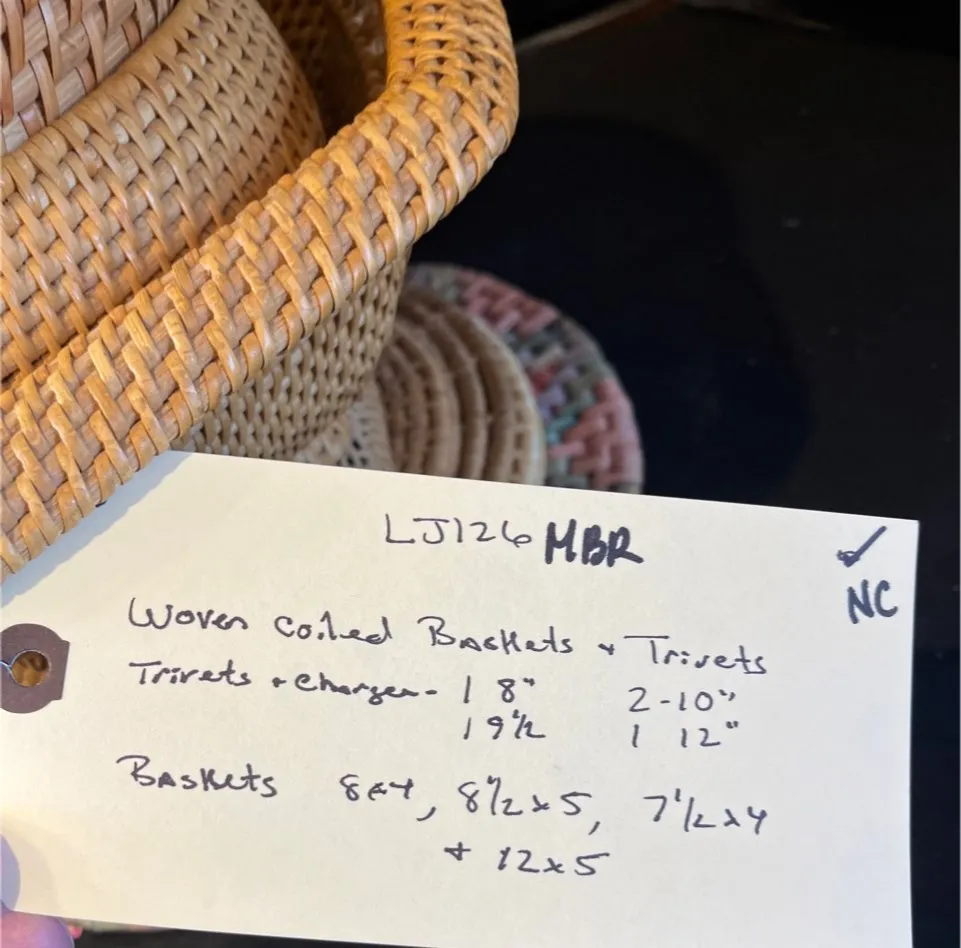 LJ126 MBR ✓
NC
Woven Coiled Baskets + Trivets
Trivets + Charger - 1 8" 2-10"
1 9 1/2 1 12"
Baskets 8x4, 8 1/2 x 5, 7 1/2 x 4
+ 12x5